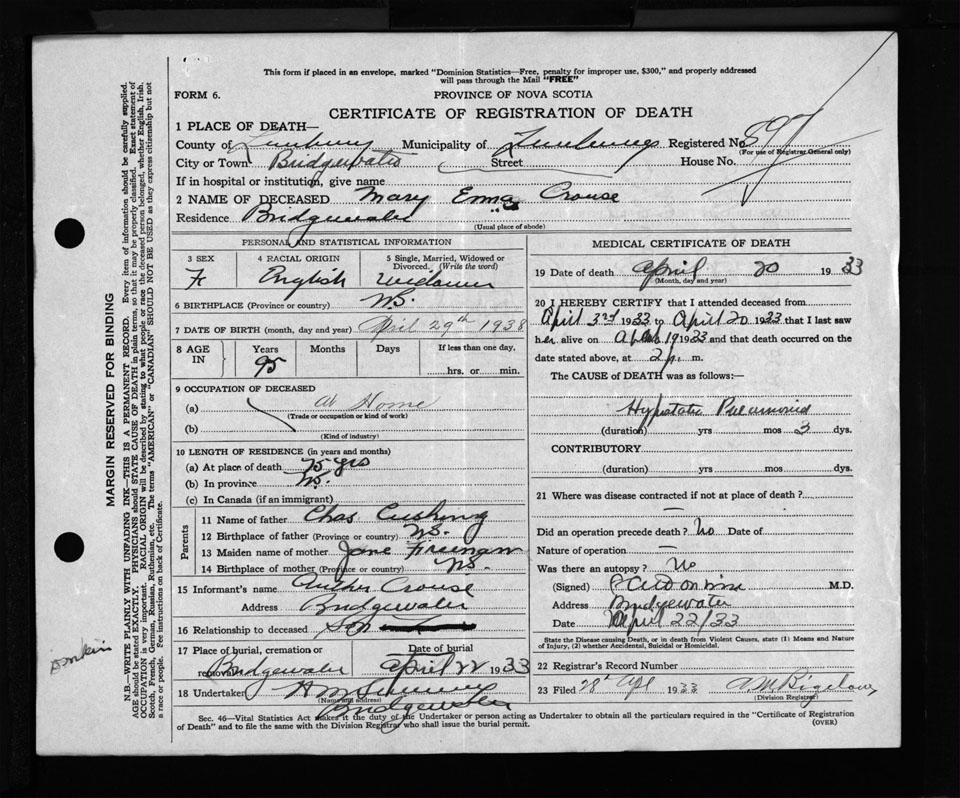 This form if placed in an envelope, marked "Dominion Statistics—Free, penalty for improper use, $300," and properly addressed
will pass through the Mail "FREE"
FORM 6. PROVINCE OF NOVA SCOTIA
CERTIFICATE OF REGISTRATION OF DEATH
1 PLACE OF DEATH—
County of Municipality of Registered No. 597
(For use of Registrar General only)
City or Town Bridgewater Street House No.
If in hospital or institution, give name
2 NAME OF DECEASED Mary Emma Crouse
Residence Bridgewater
(Usual place of abode)
PERSONAL AND STATISTICAL INFORMATION
3 SEX 4 RACIAL ORIGIN 5 Single, Married, Widowed or
Divorced. (Write the word)
F English
6 BIRTHPLACE (Province or country) N.S.
7 DATE OF BIRTH (month, day and year) April 29th 1938
8 AGE IN Years Months Days If less than one day,
95 hrs. or min.
9 OCCUPATION OF DECEASED
(a) At Home
(Trade or occupation or kind of work)
(b)
(Kind of industry)
10 LENGTH OF RESIDENCE (in years and months)
(a) At place of death 75 yrs
(b) In province N.S.
(c) In Canada (if an immigrant)
Parents
11 Name of father Chas Cushing
12 Birthplace of father (Province or country) N.S.
13 Maiden name of mother Jane Freeman
14 Birthplace of mother (Province or country) N.S.
15 Informant's name Crouse
Address Bridgewater
16 Relationship to deceased Son
17 Place of burial, cremation or Date of burial
removal Bridgewater April 22 1933
18 Undertaker
(Name and address)
Bridgewater
MEDICAL CERTIFICATE OF DEATH
19 Date of death April 20 1933
(Month, day and year)
20 I HEREBY CERTIFY that I attended deceased from
April 3rd 1933 to April 20 1933 that I last saw
her alive on 19 1933 and that death occurred on the
date stated above, at 2 p. m.
The CAUSE of DEATH was as follows:—
Hypostatic Pneumonia
(duration) yrs mos 3 dys.
CONTRIBUTORY
(duration) yrs. mos. dys.
21 Where was disease contracted if not at place of death?
—
Did an operation precede death? No Date of
Nature of operation —
Was there an autopsy? No
(Signed) M.D.
Address Bridgewater
Date April 22/33
State the Disease causing Death, or in death from Violent Causes, state (1) Means and Nature
of Injury, (2) whether Accidental, Suicidal or Homicidal.
22 Registrar's Record Number
23 Filed 28th Apl 1933 A M Bigelow
(Division Registrar)
Sec. 46—Vital Statistics Act makes it the duty of the Undertaker or person acting as Undertaker to obtain all the particulars required in the "Certificate of Registration
of Death" and to file the same with the Division Registrar who shall issue the burial permit. (OVER)
MARGIN RESERVED FOR BINDING
N.B.—WRITE PLAINLY WITH UNFADING INK—THIS IS A PERMANENT RECORD. Every item of information should be carefully supplied.
AGE should be stated EXACTLY. PHYSICIANS should STATE CAUSE OF DEATH in plain terms, so that it may be properly classified. Exact statement of
OCCUPATION is very important. RACIAL ORIGIN will be described by stating to what people or race the deceased person belonged, whether English, Irish,
Scotch, French, German, Russian, Ruthenian, etc. The terms "AMERICAN" or "CANADIAN" SHOULD NOT BE USED as they express citizenship but not
a race or people. See instructions on back of Certificate.